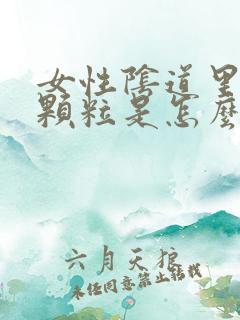 女性陰道里
顆粒是怎麼
六月天狼
未经同意禁止转载